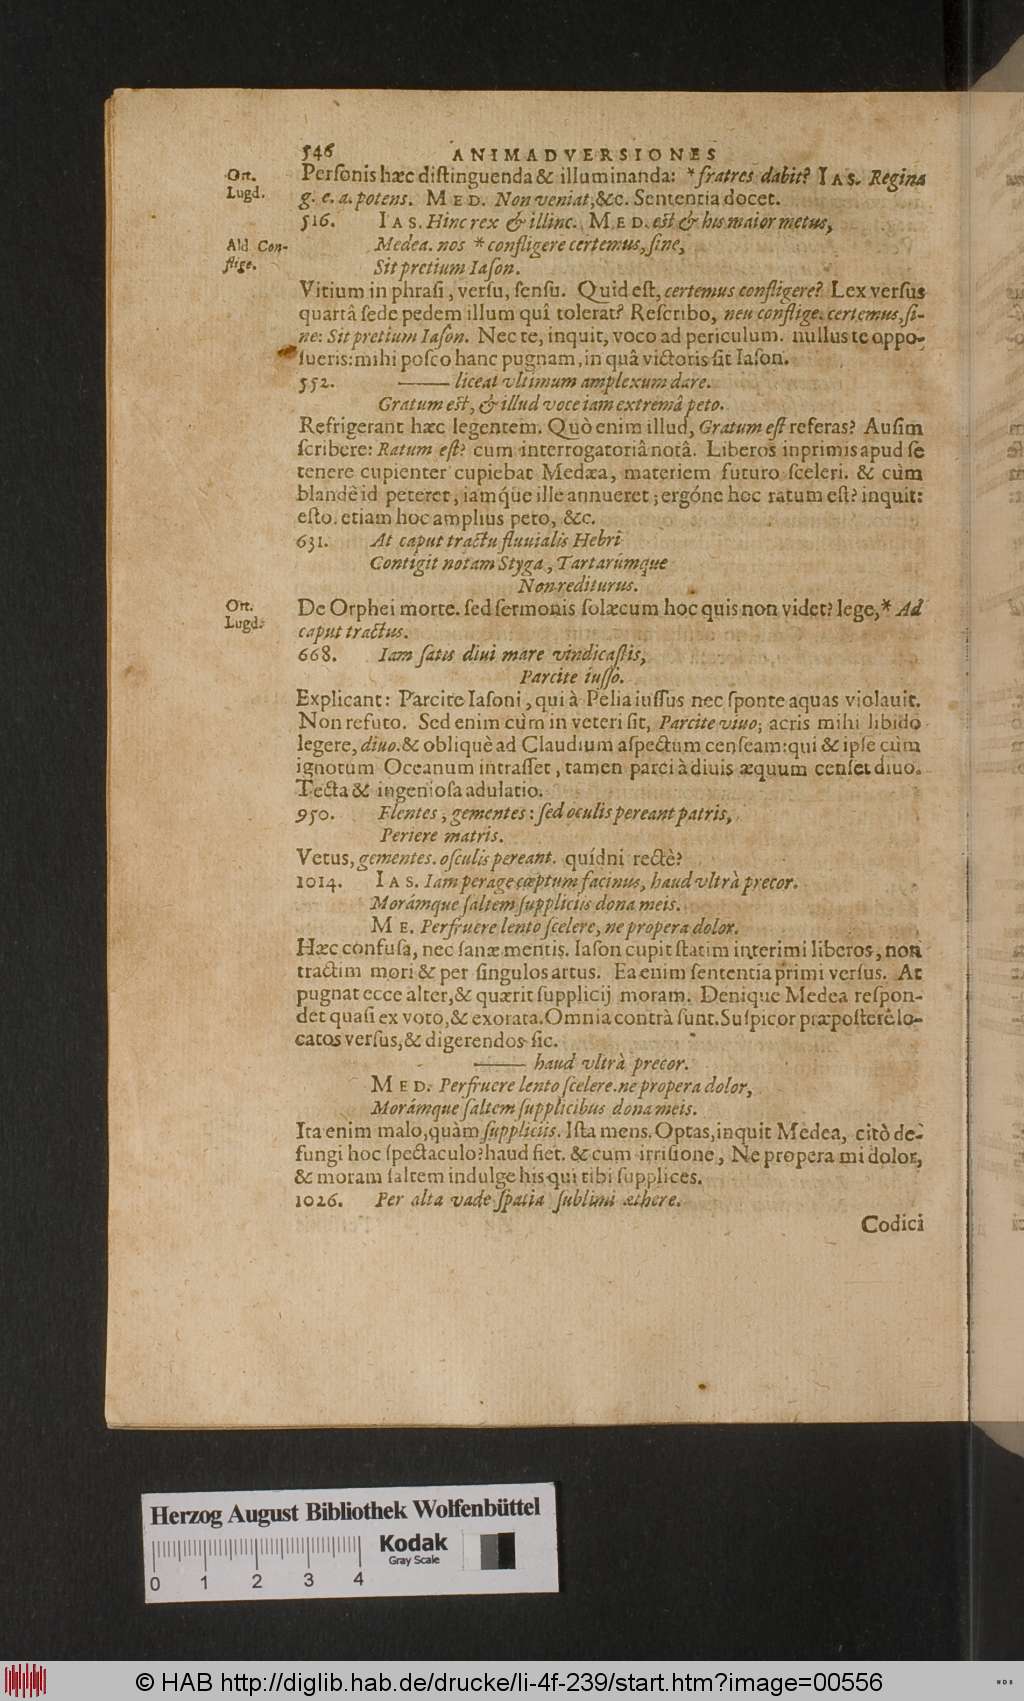 546 ANIMADVERSIONES
Ort.
Lugd.
Perſonis hæc diſtinguenda & illuminanda: *fratres dabit? IAS. Regina
g. e. a. potens. MED. Non veniat, &c. Sententia docet.
516. IAS. Hinc rex & illinc. MED. eſt & his maior metus,
Ald. Con-
flige.
Medea. nos * confligere certemus, ſine,
Sit pretium Iaſon.
Vitium in phraſi, verſu, ſenſu. Quid eſt, certemus confligere? Lex verſus
quartâ ſede pedem illum quî tolerat? Reſcribo, neu conflige. certemus, ſi-
ne: Sit pretium Iaſon. Nec te, inquit, voco ad periculum. nullus te oppo-
ſueris: mihi poſco hanc pugnam, in quâ victoris ſit Iaſon.
552. —— liceat vltimum amplexum dare.
Gratum eſt, & illud voce iam extremâ peto.
Refrigerant hæc legentem. Quò enim illud, Gratum eſt referas? Auſim
ſcribere: Ratum eſt? cum interrogatoriâ notâ. Liberos inprimis apud ſe
tenere cupienter cupiebat Medæa, materiem futuro ſceleri. & cùm
blandè id peteret, iamq́ue ille annueret; ergóne hoc ratum eſt? inquit:
eſto. etiam hoc amplius peto, &c.
631. At caput tractu fluuialis Hebri
Contigit notam Styga, Tartarúmque
Non rediturus.
Ort.
Lugd.
De Orphei morte. ſed ſermonis ſolæcum hoc quis non videt? lege, * Ad
caput tractus.
668. Iam ſatis diui mare vindicaſtis,
Parcite iuſſo.
Explicant: Parcite Iaſoni, qui à Pelia iuſſus nec ſponte aquas violauit.
Non refuto. Sed enim cùm in veteri ſit, Parcite viuo; acris mihi libido
legere, diuo. & obliquè ad Claudium aſpectum cenſeam: qui & ipſe cùm
ignotum Oceanum intraſſet, tamen parci à diuis æquum cenſet diuo.
Tecta & ingenioſa adulatio.
950. Flentes, gementes: ſed oculis pereant patris,
Periere matris.
Vetus, gementes. oſculis pereant. quídni rectè?
1014. IAS. Iam perage cœptum facinus, haud vltrà precor.
Morámque ſaltem ſuppliciis dona meis.
ME. Perfruere lento ſcelere, ne propera dolor.
Hæc confuſa, nec ſanæ mentis. Iaſon cupit ſtatim interimi liberos, non
tractim mori & per ſingulos artus. Ea enim ſententia primi verſus. At
pugnat ecce alter, & quærit ſupplicij moram. Denique Medea reſpon-
det quaſi ex voto, & exorata. Omnia contrà ſunt. Suſpicor præpoſterè lo-
catos verſus, & digerendos ſic.
—— haud vltrà precor.
MED. Perfruere lento ſcelere. ne propera dolor,
Morámque ſaltem ſupplicibus dona meis.
Ita enim malo, quàm ſuppliciis. Iſta mens. Optas, inquit Medea, citò de-
fungi hoc ſpectaculo? haud fiet. & cum irriſione, Ne propera mi dolor,
& moram ſaltem indulge his qui tibi ſupplices.
1026. Per alta vade ſpatia ſublimi æthere.
Codici
Herzog August Bibliothek Wolfenbüttel
0 1 2 3 4
Kodak
Gray Scale
© HAB http://diglib.hab.de/drucke/li-4f-239/start.htm?image=00556